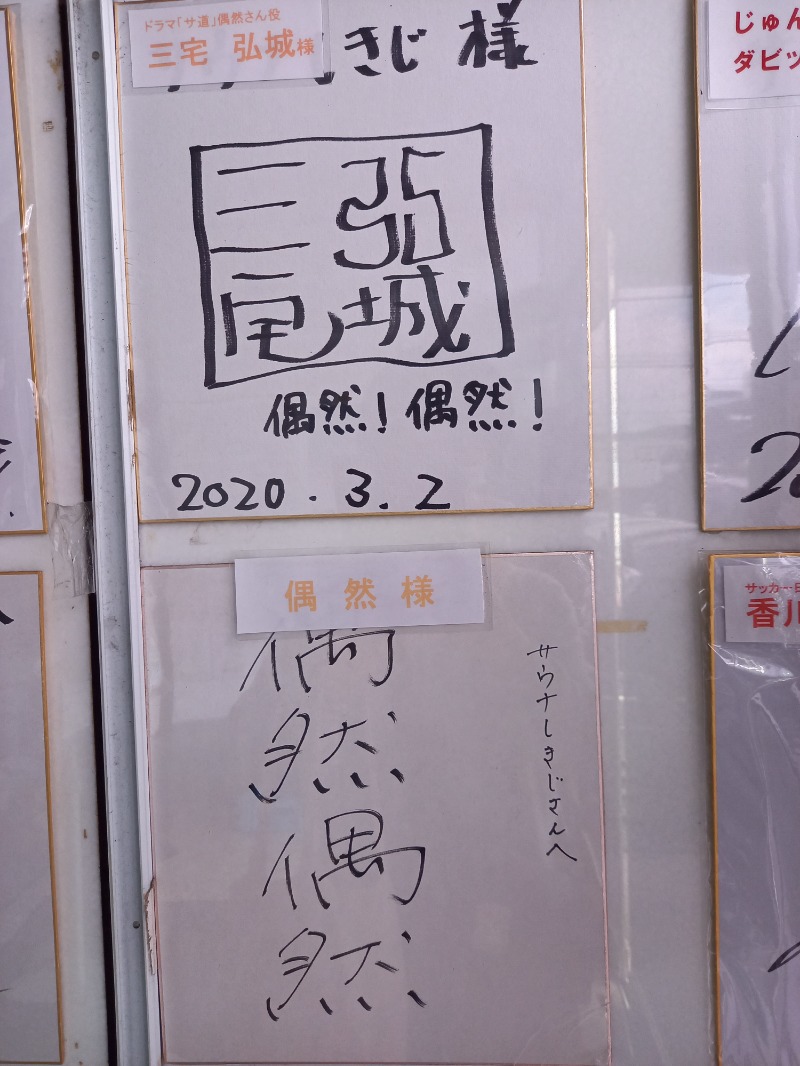 ドラマ「サ道」偶然さん役
三宅 弘城様
きじ 様
三宅
弘城
偶然！偶然！
2020.3.2
じゅん
ダビッ
偶然様
偶然偶然
サウナしきじさんへ
サッカー日
香川